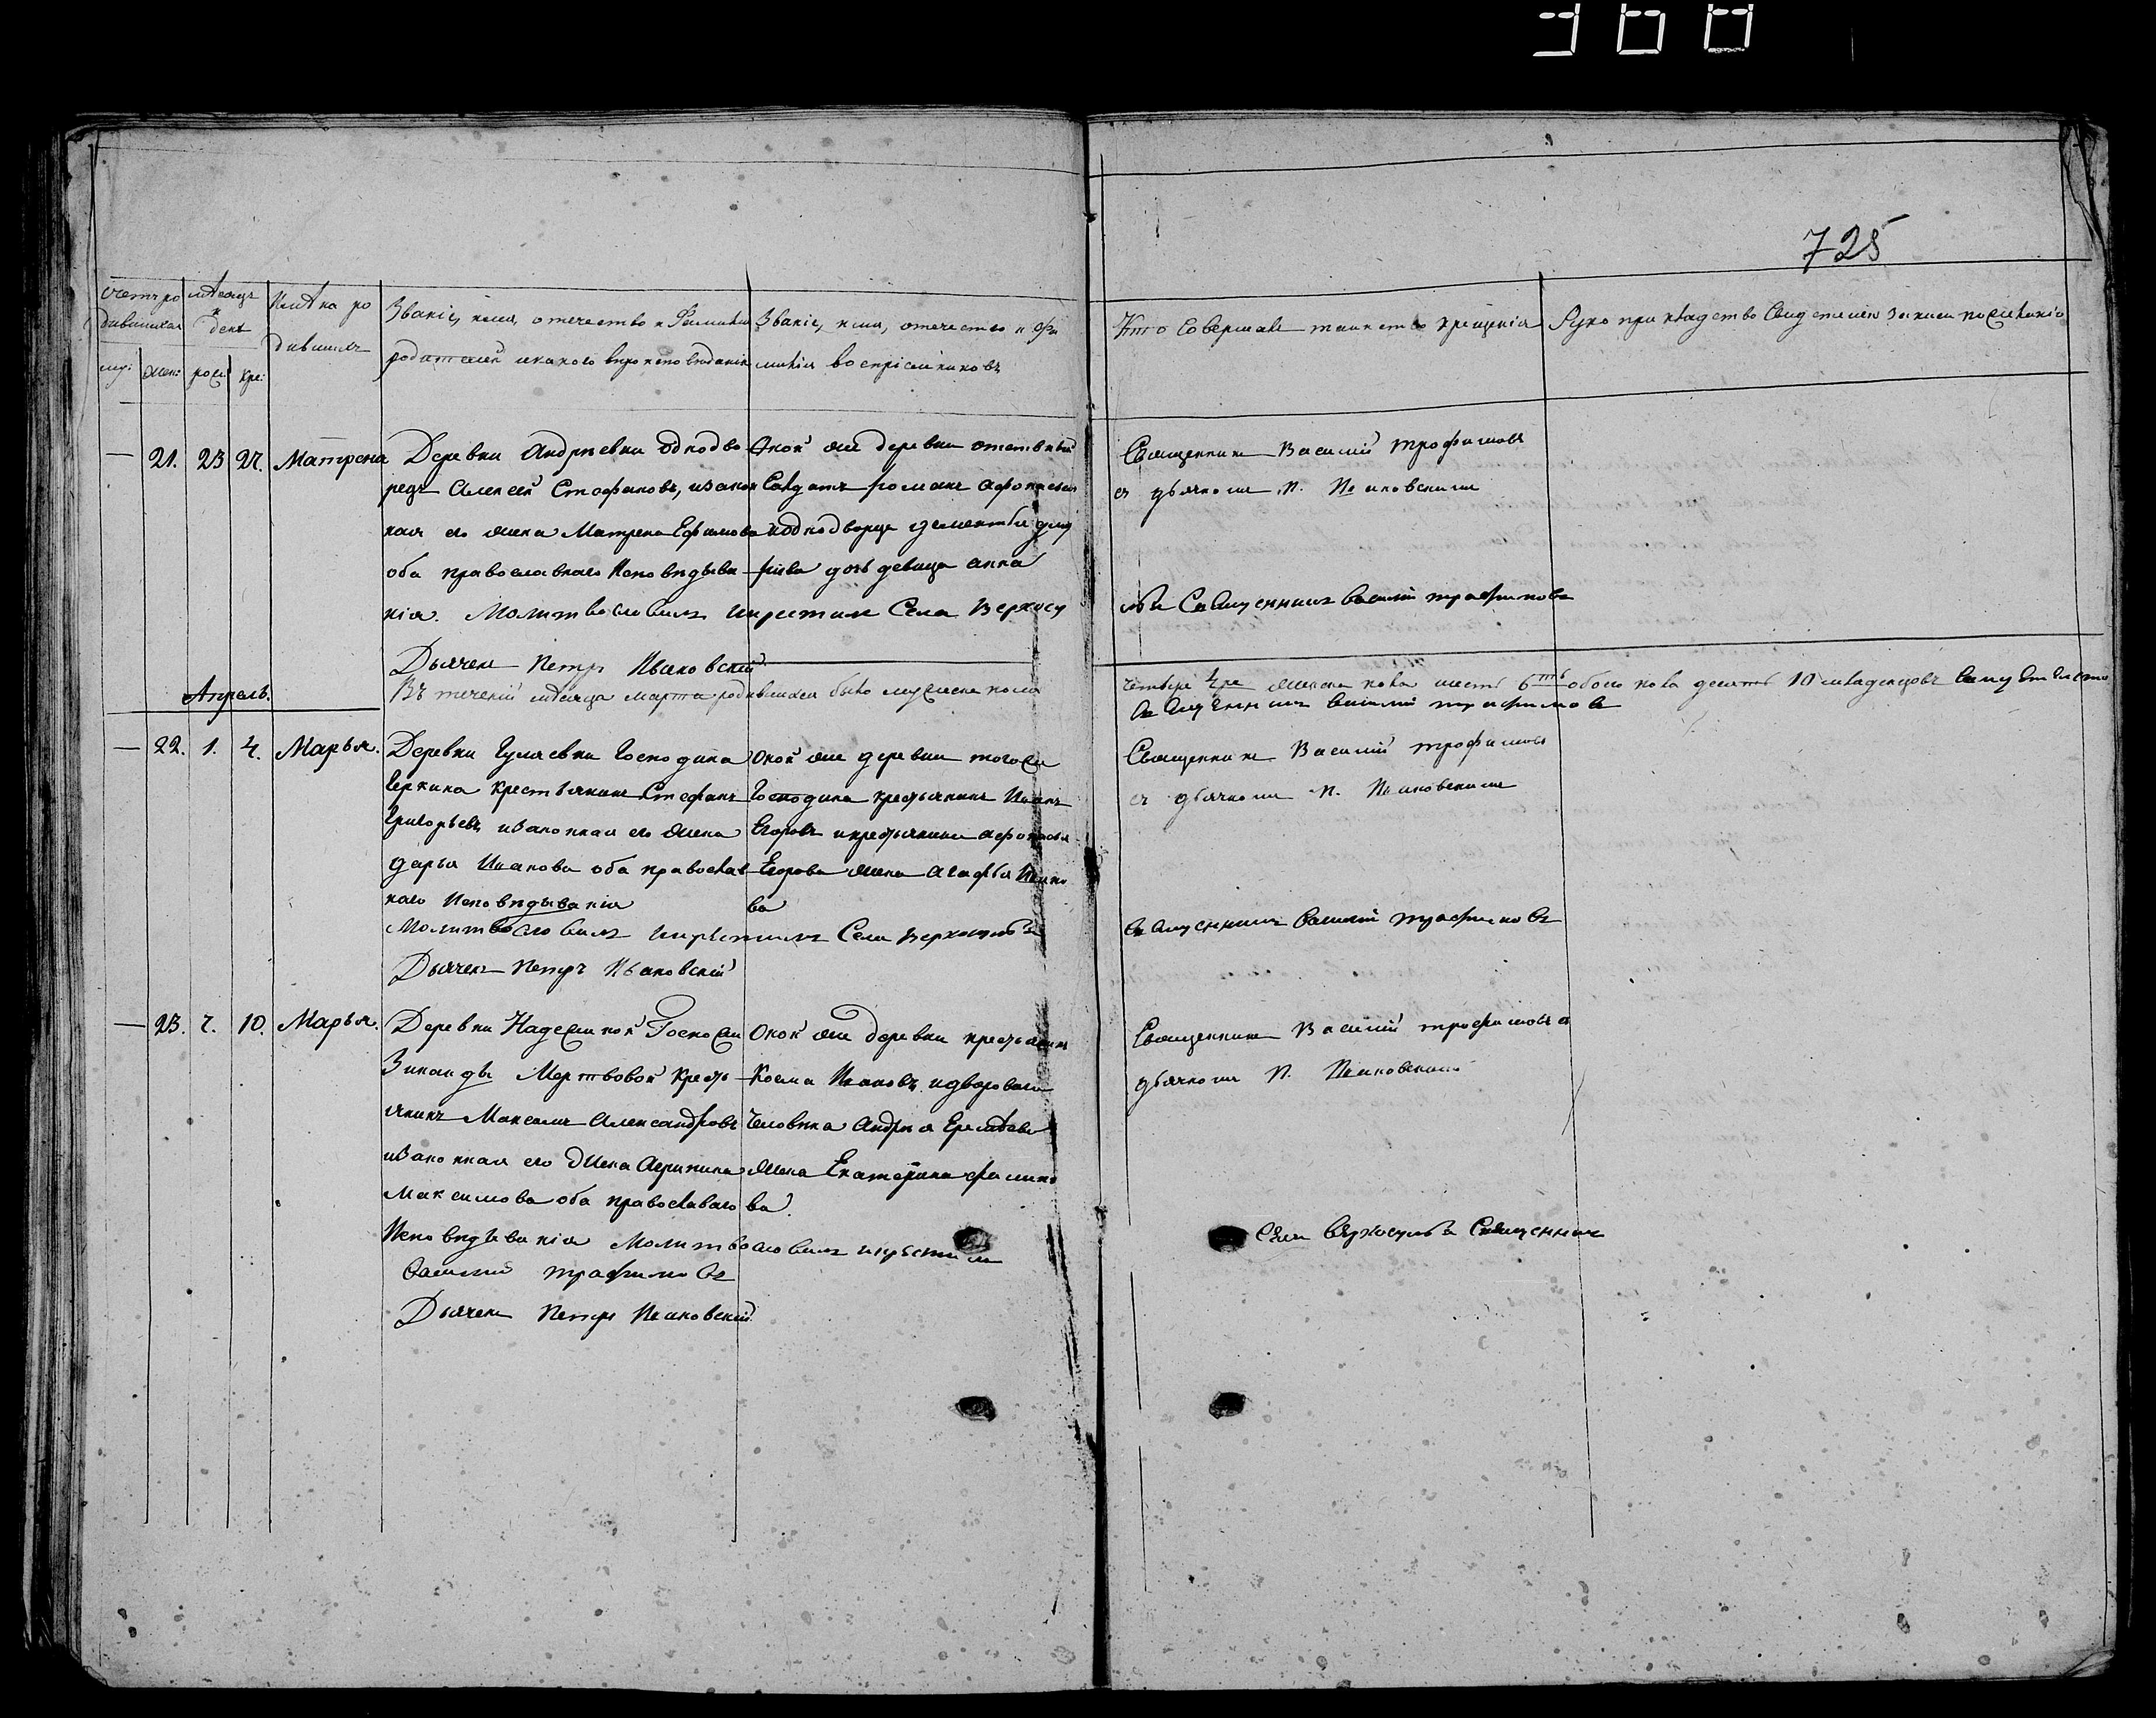 368
725
Счетъ ро
дившихся
муж: жен:
месяцъ
и
день
рож: кре:
Имѣна ро
дившихъ
Званіе, имя, отечество и Фамилія
родителей и какого вероисповеданія
Званіе, имя, отечество и фа
милія воспріемниковъ
Кто совершалъ таинство крещенія
Рукоприкладство свидетелей записи по желанію
— 21. 23 27. Матрена
Деревни Андреевки однодво
рецъ Алексей Стефановъ, и закон
ная его жена Матрена Ефимова
оба православнаго исповедыва
нія. Молитвословилъ и крестилъ Села Верхосу
Дьячекъ Петръ Ивановскій
Оной же деревни отставный
Солдатъ Романъ Афонасьев
и однодворца Дементья
дочь девица Анна
Священникъ Василій Трофимовъ
съ дьячкомъ П. Ивановскимъ
Священникъ Василий Трафимовъ
Въ теченіи месяца Марта родившихся было мужеска пола
четыре 4ре женска пола шесть 6ть обоего пола десять 10 младенцовъ
Священникъ Василий Трафимовъ
Апрель.
— 22. 1. 4. Марья.
Деревни Гуляевки Господина
крестьянинъ Стефанъ
Григорьевъ и законная его жена
Дарья Иванова оба православ
наго исповедыванія
Молитвословилъ и крестилъ Села
Дьячекъ Петръ Ивановскій
Оной же деревни того же
Господина крестьянинъ Иванъ
Егоровъ и крестьянина Афонасья
Егорова жена Агафья Ивано
ва
Священникъ Василій Трофимовъ
съ дьячкомъ П. Ивановскимъ
Священникъ Василий Трафимовъ
— 23. 7. 10. Марья.
Деревни Госпожи
Зинаиды Мертвовой кресть
янинъ Максимъ Александровъ
и законная его жена Агрипина
Максимова оба православнаго
Исповедыванія Молитвословилъ и крестилъ
Василий Трафимовъ
Дьячекъ Петръ Ивановскій
Оной же деревни крестьянинъ
Косма Ивановъ и двороваго
человека Андрея
жена Екатерина
ва
Священникъ Василій Трофимовъ съ
дьячкомъ П. Ивановскимъ
Села Священникъ